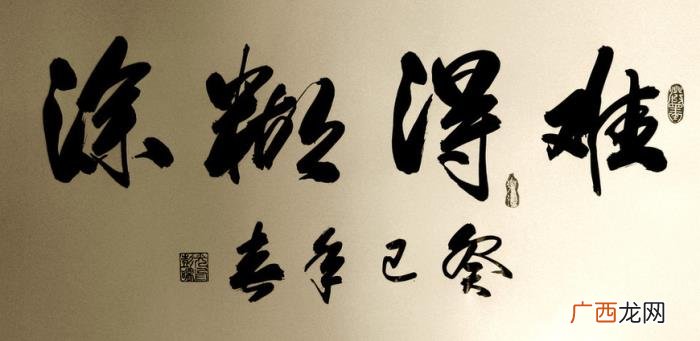 难得糊涂
癸巳年春
广西龙网